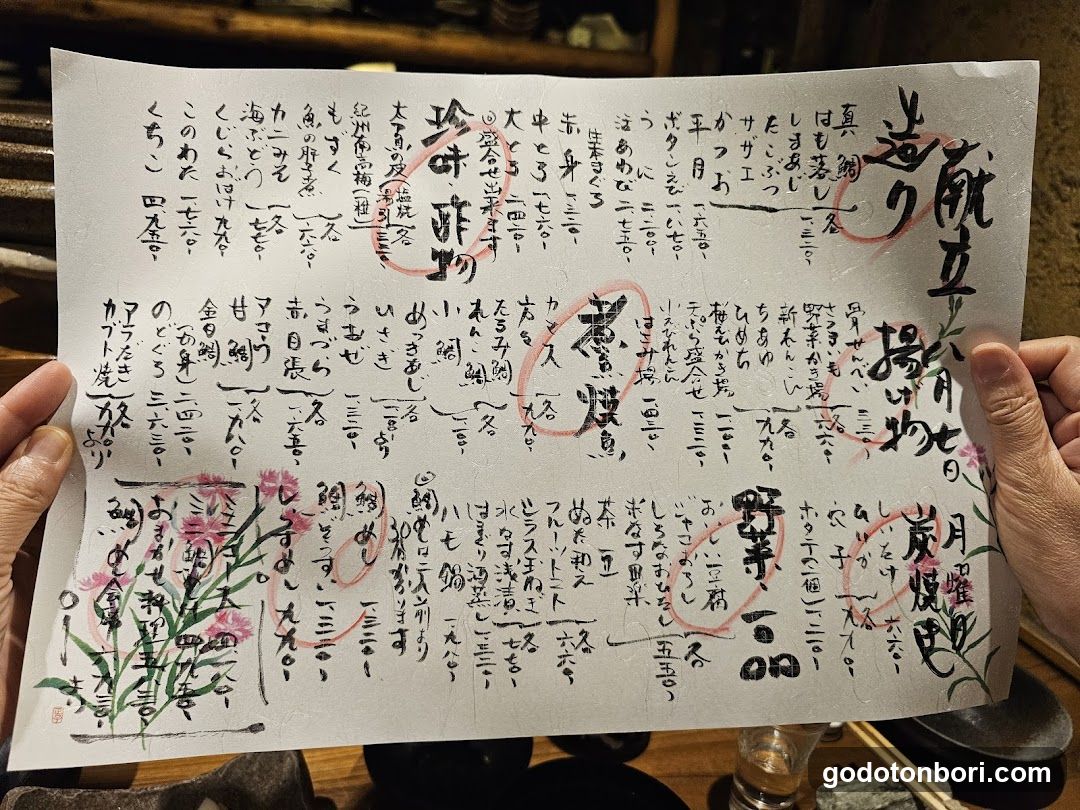 献立 六月七日 月曜日
造り
真鯛
はも落し
しまあじ
たこぶつ
サザエ
各 一、三二〇、
かつお
平貝 一、六五〇、
ボタンえび 一、八七〇、
うに 二、二〇〇、
活あわび 二、七五〇、
生本まぐろ
赤身 一、三二〇、
中とろ 一、七六〇、
大とろ 二、四二〇、
◎盛合せ出来ます
珍味・酢物
太刀魚の皮(塩焼 湯引 各 三三〇、
紀州南高梅(一粒)
もずく 各
魚の肝煮 一、六六〇、
カニみそ
海ぶどう 各 七七〇、
くじらおばけ 九九〇、
このわた 一、七六〇、
くちこ 四、九五〇、
揚げ物
せんべい 三三〇、
さつまいも
野菜かき揚 各 六六〇、
新れんこん
ちあゆ 各
ひめち 九九〇、
桜えびかき揚
天ぷら盛合せ 一、三二〇、
小えびれんこん
はさみ揚 一、四三〇、
煮・焼魚
カマス
各 九九〇、
たるみ鯛
れんこ鯛
小鯛 各 一、一〇〇、
めっきあじ 各
いさき
うおぜ 一、三二〇、
うまづら
赤目張 各 一、六五〇、
アコウ
甘鯛 各 一、九八〇、
金目鯛
(切身) 二、四二〇、
のどぐろ 三、六三〇、
アラだき
カブト焼 各 九九〇、より
炭焼き
しいたけ 各 六六〇、
穴子 九九〇、
ホタテ(一個) 一、二一〇、
野菜、一品
おいしい豆腐
じゃこおろし 各
しろなおひたし 五五〇、
水なす田楽
茶豆
ぬた和え
フルーツトマト 各 六六〇、
ビーンズ玉ねぎ
水なす浅漬 各 七七〇、
はまぐり酒蒸し 一、三二〇、
ハモ鍋 一、九八〇、
◎鯛めしは二人前より
30分かかります
鯛めし 一、三二〇、
鯛ぞうすい 一、三二〇、
しらすめし 九九〇、
おまかせ料理 五、五〇〇、
鯛めし会席
より
godotonbori.com